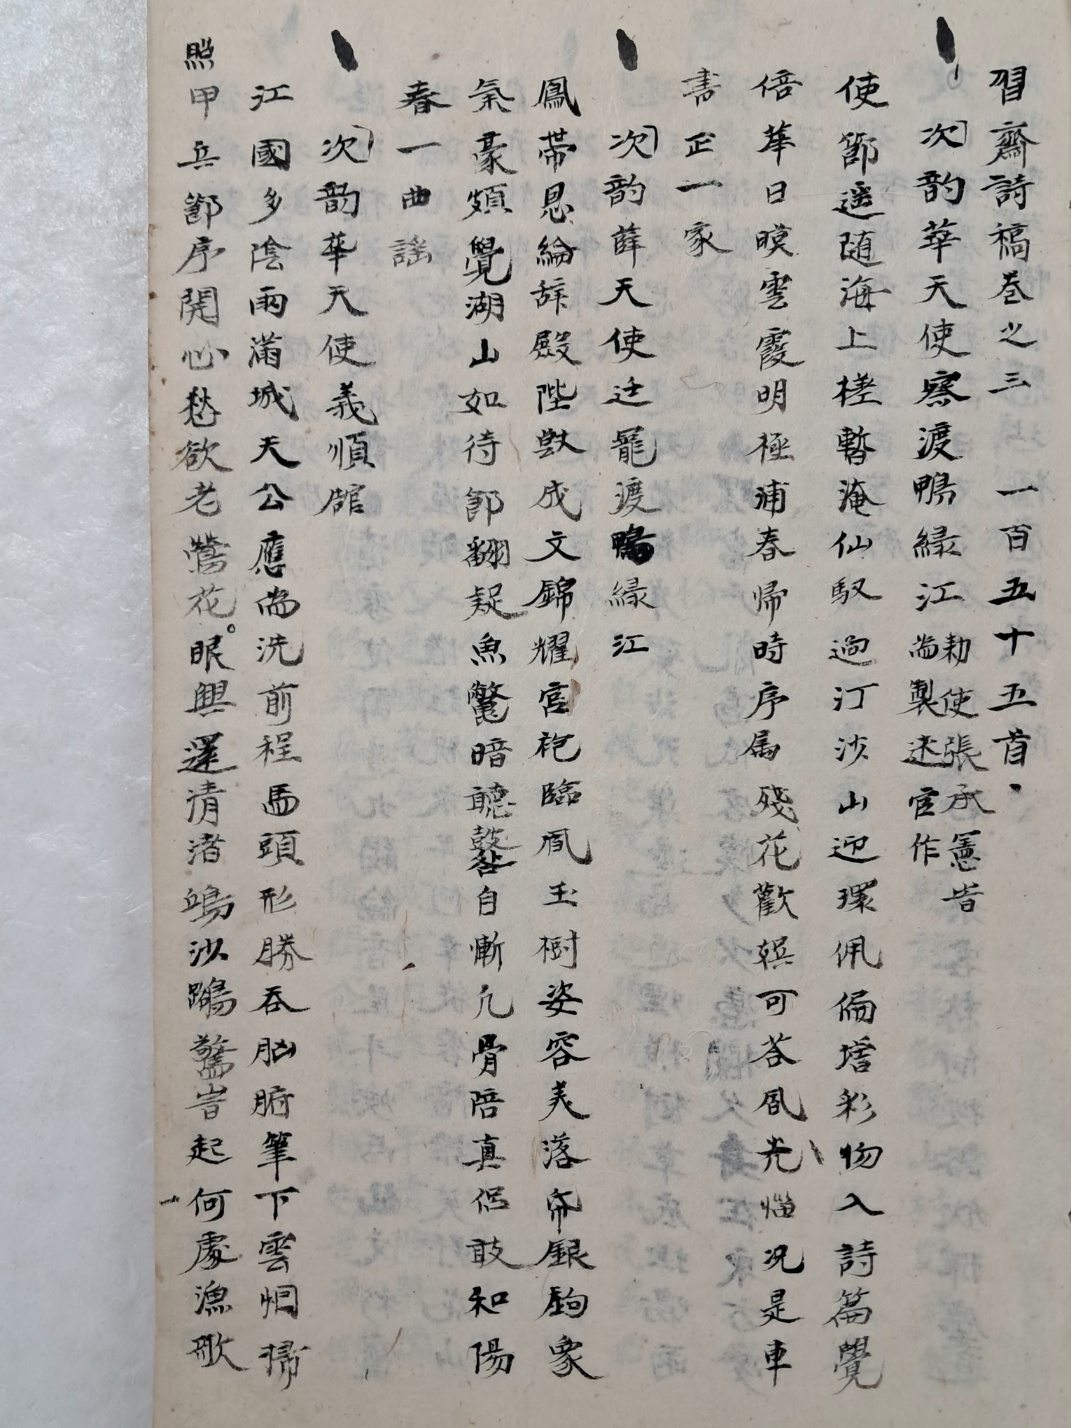 習齋詩稿卷之三 一百五十五首
次韵華天使察渡鴨綠江 勅使張承憲皆
製 迷官作
使節遥随海上槎暫淹仙馭過汀沙山迎環佩偏增彩物入詩篇覺
倍華日暎雲霞明極浦春歸時序屬殘花歡娛可答風光惱况是車
書正一家
次韵薛天使廷寵渡鴨綠江
鳳帶恩綸辞殿陛獸成文錦耀宮袍臨風玉樹姿容美落帋銀鉤象
氣豪頻覺湖山如待節翻疑魚鱉暗聽鼛自慚凡骨陪真侶敢和陽
春一曲謠
次韵華天使義順館
江國多陰雨滿城天公應爲洗前程馬頭形勝吞胸腑筆下雲烟掃
甲兵節序開心愁欲老鶯花照眼興還清渚鳴沙鷗驚岩起何處漁歌